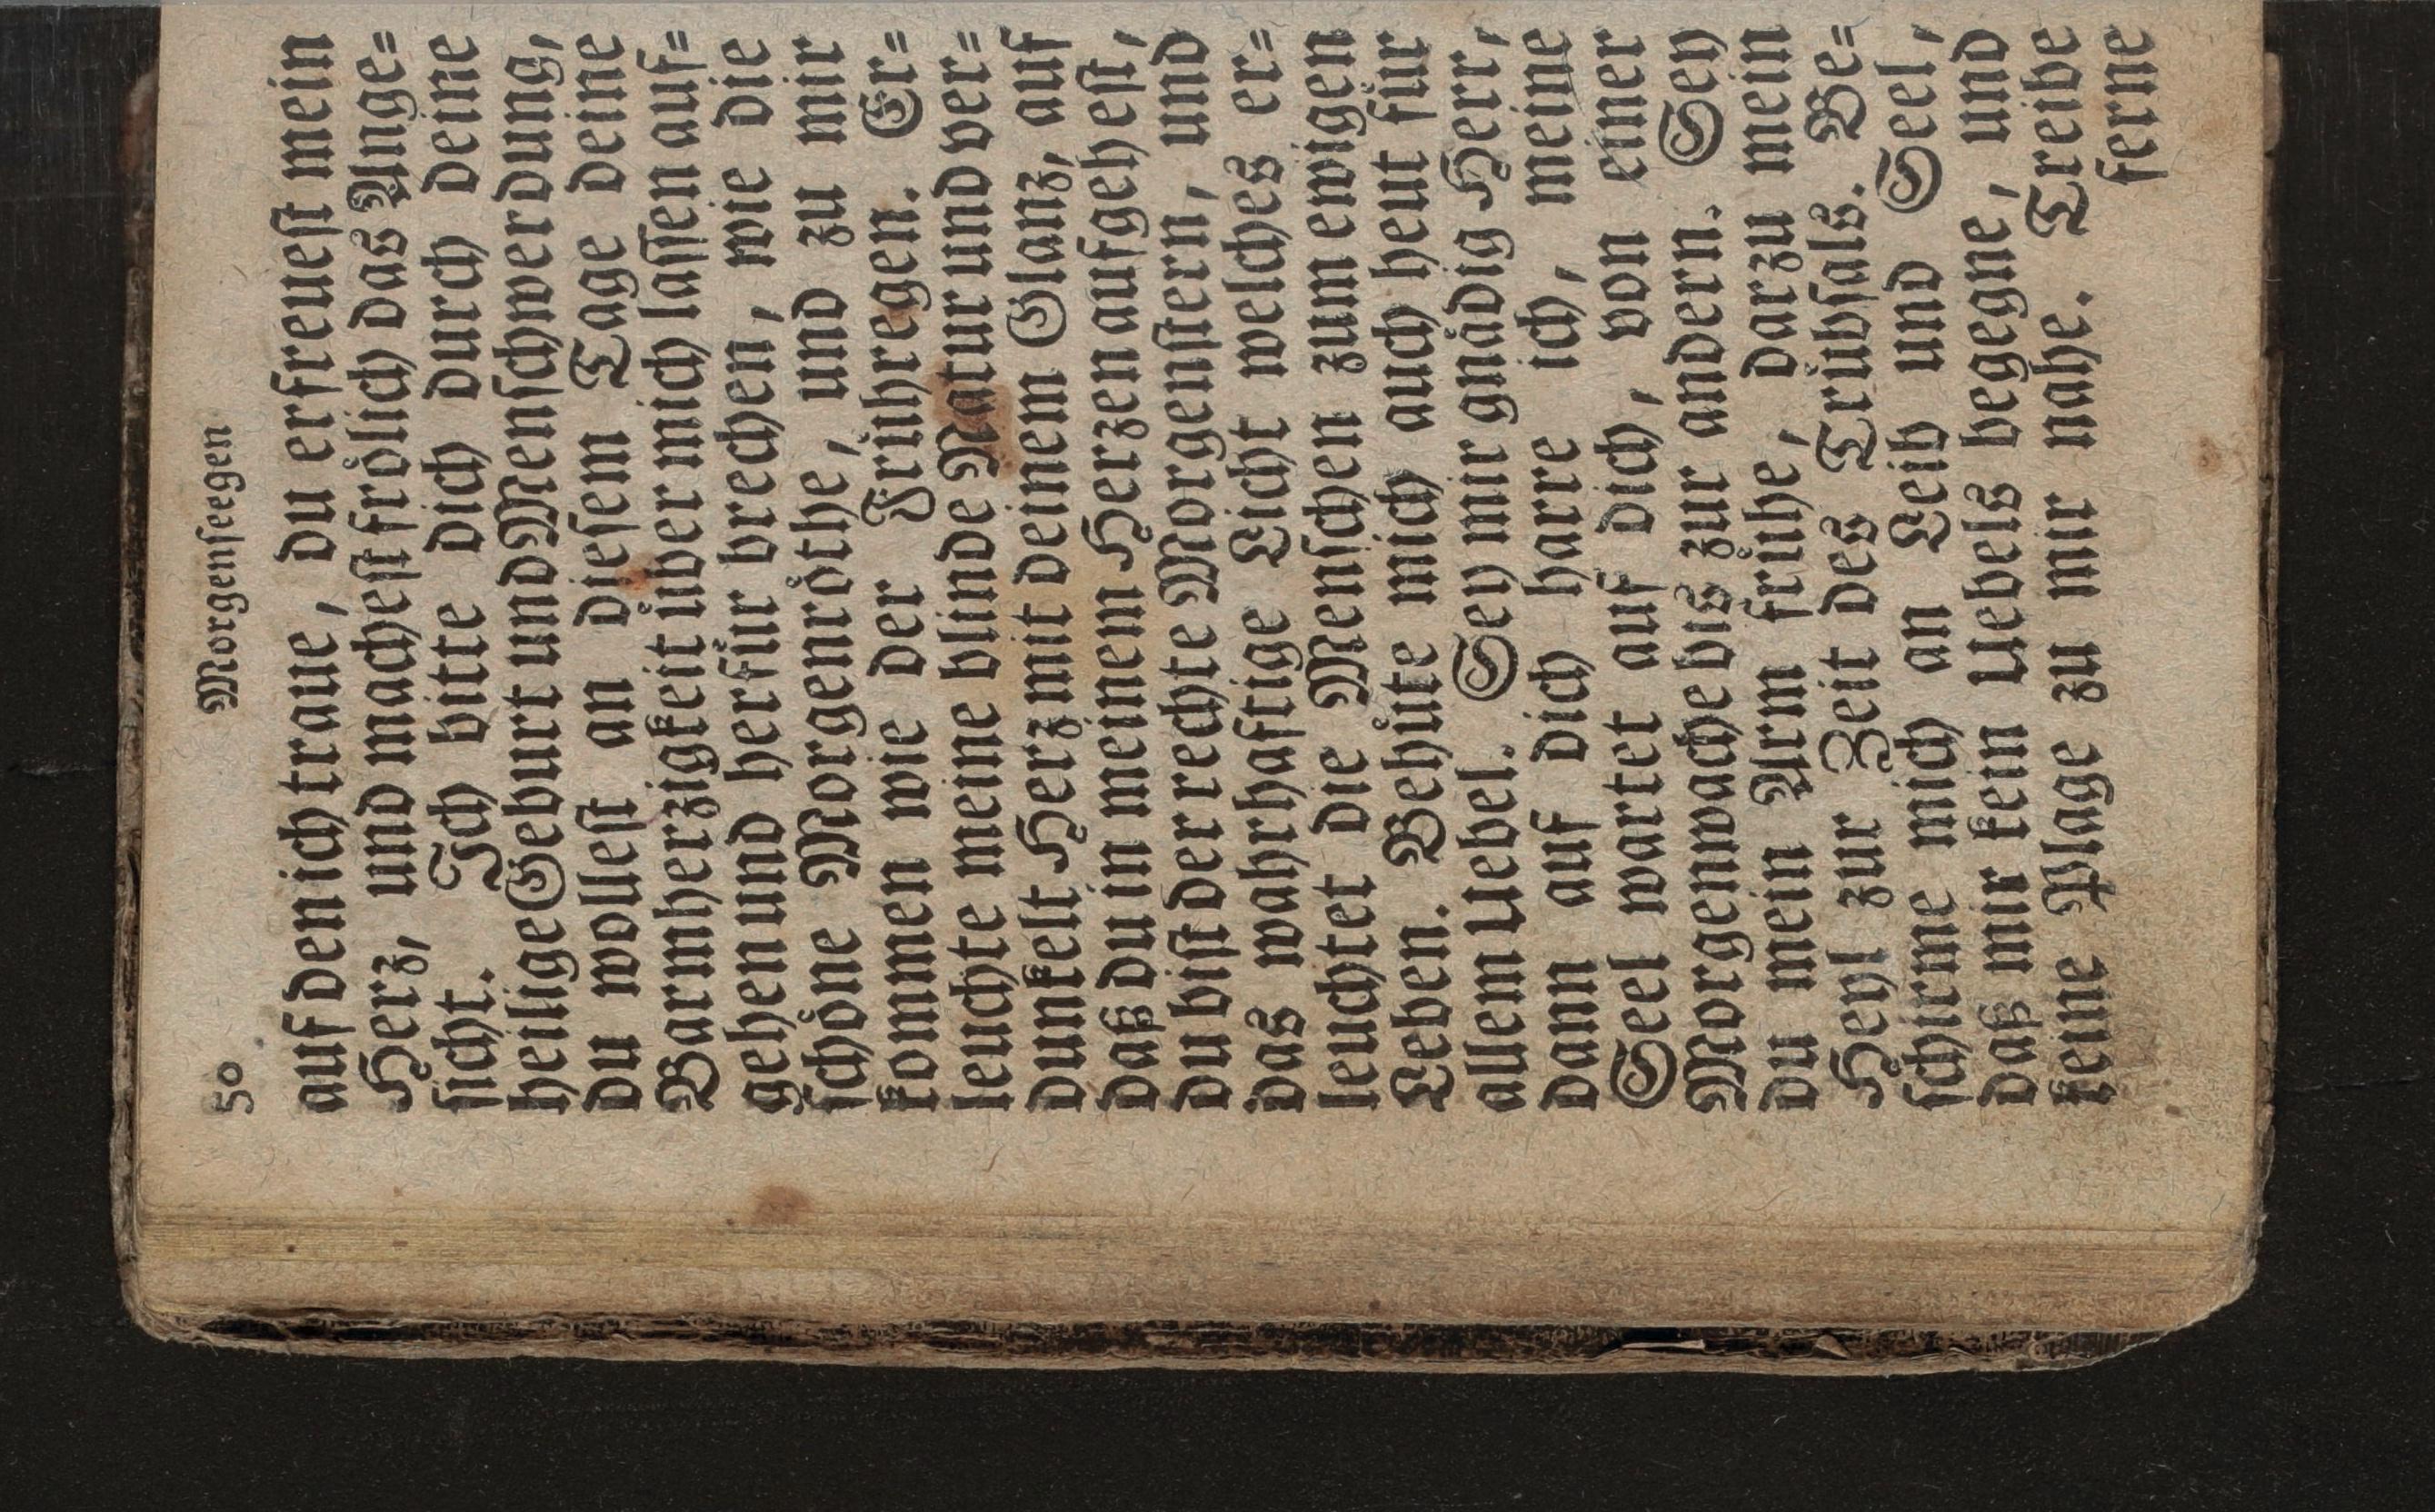 50 Morgenseegen
auf den ich traue, du erfreuest mein
Herz, und machest frölich das Ange=
sicht. Ich bitte dich durch deine
heilige Geburt und Menschwerdung,
du wollest an diesem Tage deine
Barmherzigkeit über mich lassen auf=
gehen und herfür brechen, wie die
schöne Morgenröthe, und zu mir
kommen wie der Frühregen. Er=
leuchte meine blinde Natur und ver=
dunkelt Herz mit deinem Glanz, auf
daß du in meinem Herzen aufgehest,
du bist der rechte Morgenstern, und
das wahrhaftige Licht welches er=
leuchtet die Menschen zum ewigen
Leben. Behüte mich auch heut für
allem Uebel. Sey mir gnädig Herr,
dann auf dich harre ich, meine
Seel wartet auf dich, von einer
Morgenwache bis zur andern. Sey
du mein Arm frühe, darzu mein
Heyl zur Zeit des Trübsals. Be=
schirme mich an Leib und Seel,
daß mir kein Uebels begegne, und
keine Plage zu mir nahe. Treibe
ferne